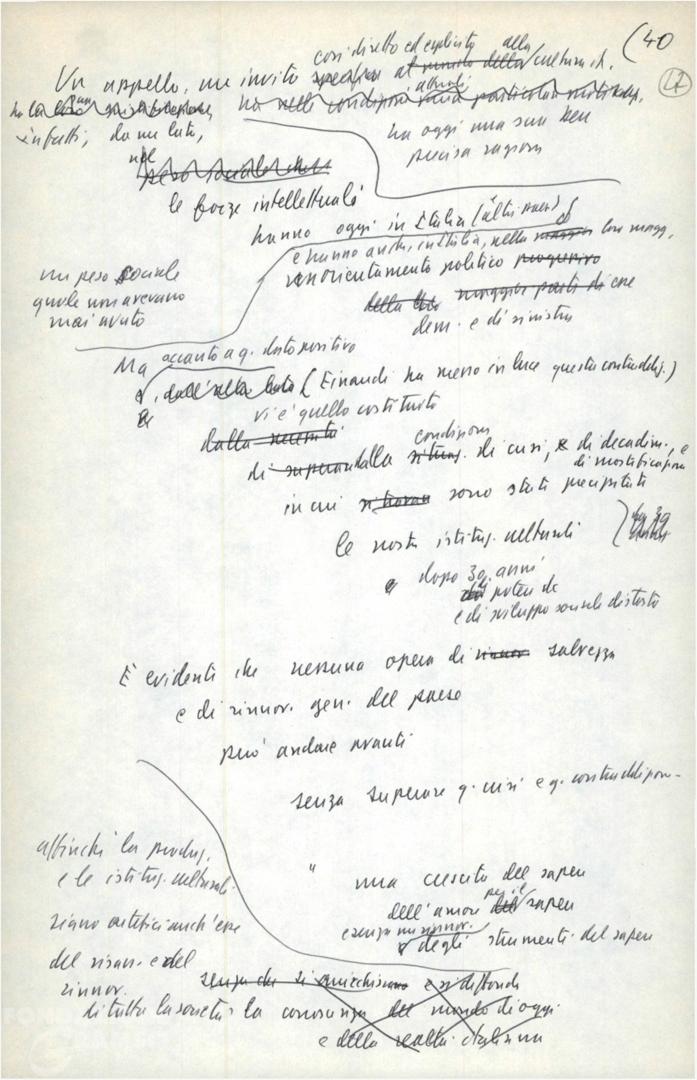 (40
47
così diretto ed esplicito alla
Un appello, un invito specifico al mondo della cultura it.
attuali
ha nelle condizioni una particolare motivaz.
ha oggi una sua ben
precisa ragione
infatti, da un lato,
nel
peso sociale
le forze intellettuali
hanno oggi in Italia (altri paesi)
e hanno anche, in Italia, nella loro magg.
un orientamento politico progressivo
della maggior parte di esse
dem. e di sinistra
un peso sociale
quale non avevano
mai avuto
Ma accanto a q. dato positivo
e, dall'altro lato (Einaudi ha messo in luce questa contraddiz.)
vi è quello costituito
dalla necessità
condizione
di superare dalla situaz. di crisi, e di decadim., e
di mortificazione
in cui si trovano sono stati precipitati
le nostre istituz. culturali
e dopo 30 anni
di potere dc
e di sviluppo sociale distorto
È evidente che nessuna opera di rinnov. salvezza
e di rinnov. gen. del paese
può andare avanti
senza superare q. crisi e q. contraddizione
affinché la produz.
e le istituz. culturali
siano artefici anch'esse
del risan. e del
rinnov.
di tutta la società
" una crescita del sapere
dell'amore per il sapere
e senza un rinnov.
degli strumenti del sapere
senza che si arricchiscano e si diffonda
la conoscenza del mondo di oggi
e della realtà italiana